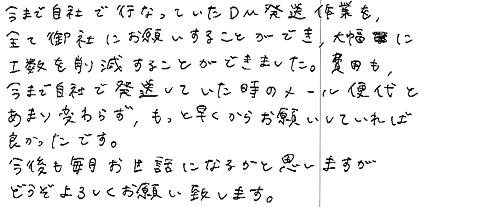 今まで自社で行なっていたDM発送作業を,
全て御社にお願いすることができ,大幅に
工数を削減することができました。費用も,
今まで自社で発送していた時のメール便代と
あまり変わらず,もっと早くからお願いしていれば
良かったです。
今後も毎月お世話になるかと思いますが
どうぞよろしくお願い致します。